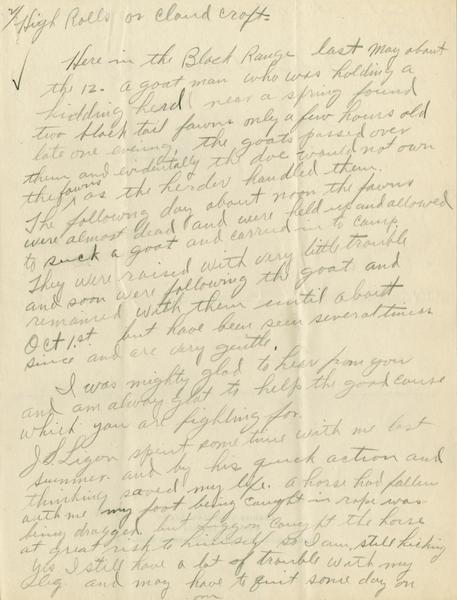 2/
High Rolls or Cloud Croft.
✓ Here in the Black Range last May about
the 12. a goat man who was holding a
kidding herd near a spring found
two black tail fawns only a few hours old
late one evening, the goats passed over
them and evidentally the doe would not own
the fawns as the herder handled them.
The following day about noon the fawns
were almost dead and were held up and allowed
to suck a goat and carried in to camp.
They were raised with very little trouble
and soon were following the goat and
remained with them until about
Oct 1st. but have been seen several times
since and are very gentle.
I was mighty glad to hear from you
and am always glat to help the good cause
which you are fighting for.
J S. Ligon spent some time with me last
summer and by his quick action and
thinking saved my life. a horse had fallen
with me my foot being caught in rope was
being dragged but Liggon caught the horse
at great risk to himself so I am still kicking
Yes I still have a lot of trouble with my
leg and may have to quit some day on